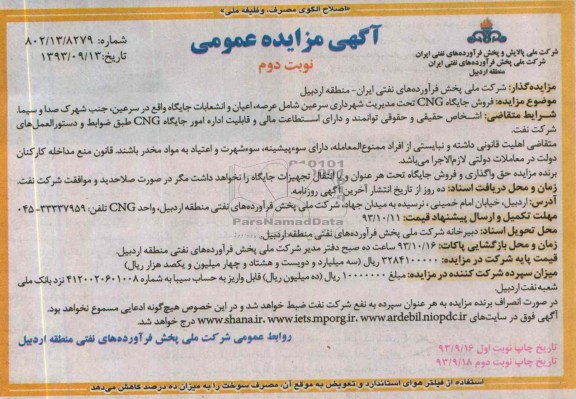 «اصلاح الگوی مصرف، وظیفه ملی»
شماره: ۸۰۲/۱۳/۸۲۷۹
تاریخ:۱۳۹۳/۰۹/۱۳
آگهی مزایده عمومی
نوبت دوم
شرکت ملی پالایش و پخش فرآورده‌های نفتی ایران
شرکت ملی پخش فرآورده‌های نفتی ایران
منطقه اردبیل
مزایده‌گذار: شرکت ملی پخش فرآورده‌های نفتی ایران- منطقه اردبیل
موضوع مزایده: فروش جایگاه CNG تحت مدیریت شهرداری سرعین شامل عرصه، اعیان و انشعابات جایگاه واقع در سرعین، جنب شهرک صدا و سیما.
شرایط متقاضی: اشخاص حقیقی و حقوقی توانمند و دارای استطاعت مالی و قابلیت اداره امور جایگاه CNG طبق ضوابط و دستورالعمل‌های
شرکت نفت.
متقاضی اهلیت قانونی داشته و نبایستی از افراد ممنوع‌المعامله، دارای سوءپیشینه، سوءشهرت و اعتیاد به مواد مخدر باشند. قانون منع مداخله کارکنان
دولت در معاملات دولتی لازم‌الاجرا می‌باشد.
برنده مزایده حق واگذاری و فروش جایگاه تحت هر عنوان و یا انتقال تجهیزات جایگاه را نخواهد داشت مگر در صورت صلاحدید و موافقت شرکت نفت.
زمان و محل دریافت اسناد: ده روز از تاریخ انتشار آخرین آگهی روزنامه.
آدرس: اردبیل، خیابان امام خمینی ، نرسیده به میدان جهاد، شرکت ملی پخش فرآورده‌های نفتی منطقه اردبیل، واحد CNG تلفن: ۳۳۳۳۷۹۵۹-۰۴۵
مهلت تکمیل و ارسال پیشنهاد قیمت: ۹۳/۱۰/۱۱
محل تحویل اسناد: دبیرخانه شرکت ملی پخش فرآورده‌های نفتی منطقه اردبیل.
زمان و محل بازگشایی پاکات: ۹۳/۱۰/۱۶ ساعت ده صبح دفتر مدیر شرکت ملی پخش فرآورده‌های نفتی منطقه اردبیل.
قیمت پایه شرکت در مزایده: ۳۲۸۴۱۰۰۰۰۰ ریال (سه میلیارد و دویست و هشتاد و چهار میلیون و یکصد هزار ریال)
میزان سپرده شرکت کننده در مزایده: مبلغ ۱۰۰۰۰۰۰۰ ریال (ده میلیون ریال) قابل واریز به حساب سیبا به شماره ۴۱۲۰۰۲۰۶۰۱۰۰۸ نزد بانک ملی
شعبه نفت اردبیل.
در صورت انصراف برنده مزایده به هر عنوان سپرده به نفع شرکت نفت ضبط خواهد شد و در این خصوص هیچ‌گونه ادعایی مسموع نخواهد بود.
آگهی فوق در سایت‌های www.shana.ir، www.iets.mporg.ir، www.ardebil.niopdc.ir درج خواهد شد.
روابط عمومی شرکت ملی پخش فرآورده‌های نفتی منطقه اردبیل
تاریخ چاپ نوبت اول ۹۳/۹/۱۶
تاریخ چاپ نوبت دوم ۹۳/۹/۱۸
استفاده از فیلتر هوای استاندارد و تعویض به موقع آن، مصرف سوخت را به میزان ده درصد کاهش می‌دهد
ParsNamadData